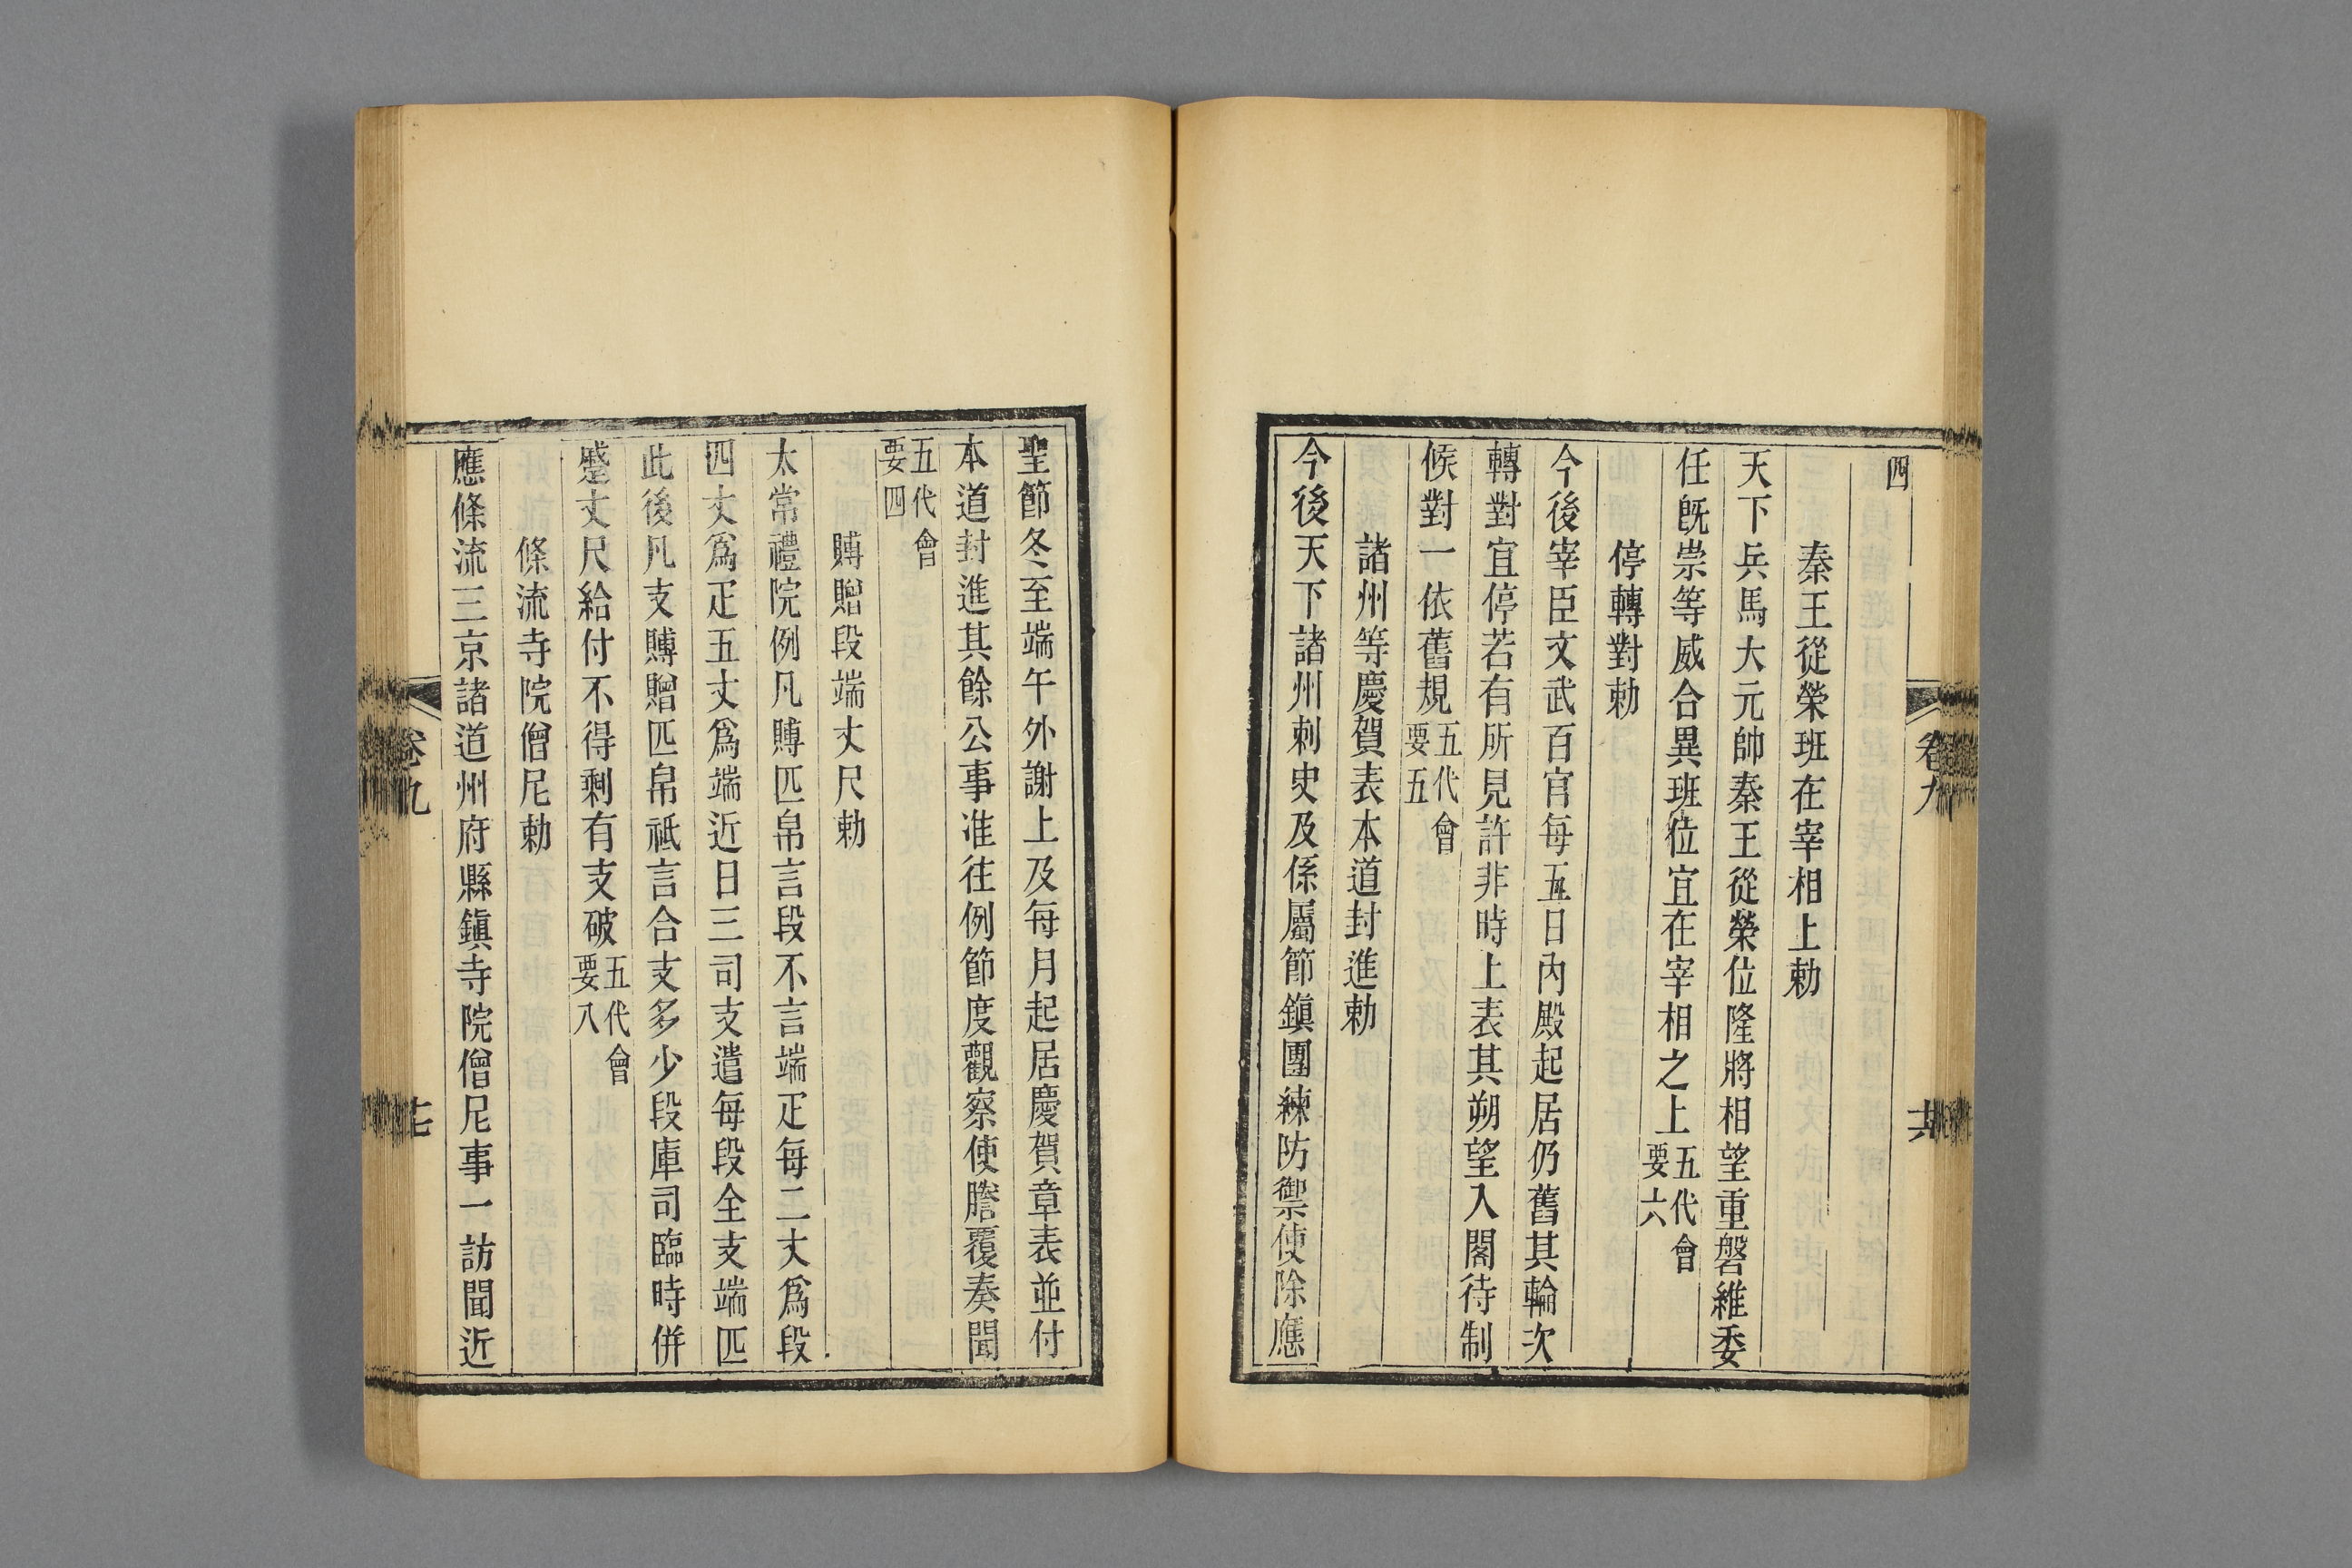 四
秦王從榮班在宰相上勅
天下兵馬大元帥秦王從榮位隆將相望重磐維委
任旣崇等威合異班位宜在宰相之上五代會要六
停轉對勅
今後宰臣文武百官每五日內殿起居仍舊其輪次
轉對宜停若有所見許非時上表其朔望入閣待制
候對一依舊規五代會要五
諸州等慶賀表本道封進勅
今後天下諸州刺史及係屬節鎭團練防禦使除應
卷九
共
聖節冬至端午外謝上及每月起居慶賀章表並付
本道封進其餘公事准往例節度觀察使謄覆奏聞
五代會要四
賻贈段端丈尺勅
太常禮院例凡賻匹帛言段不言端疋每二丈爲段
四丈爲疋五丈爲端近日三司支遣每段全支端匹
此後凡支賻贈匹帛祗言合支多少段庫司臨時併
蹙丈尺給付不得剩有支破五代會要八
條流寺院僧尼勅
應條流三京諸道州府縣鎭寺院僧尼事一訪聞近
卷九